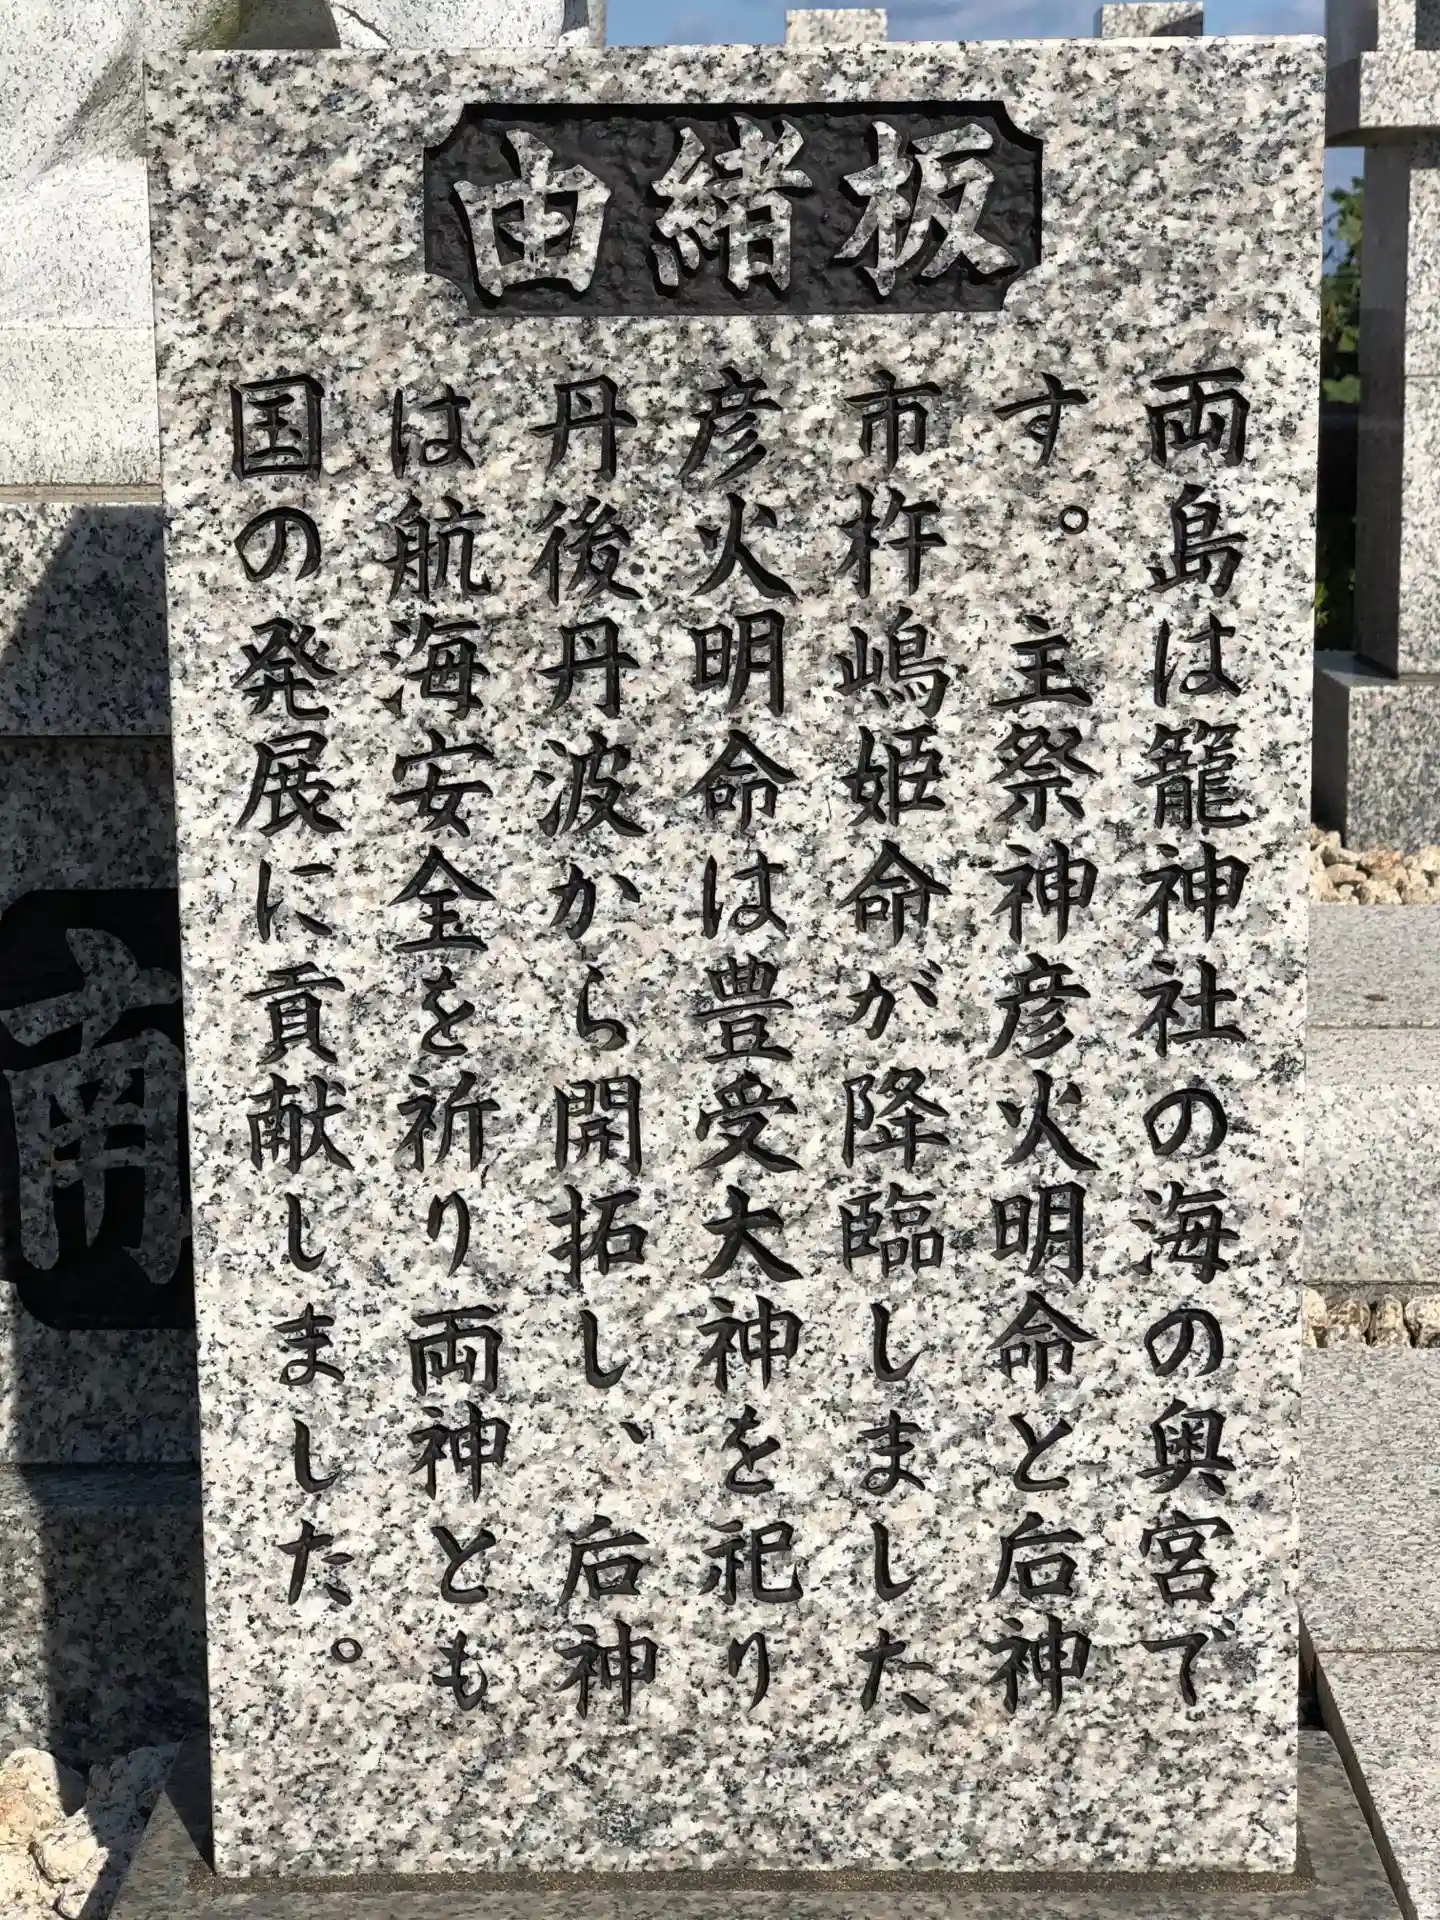 由緒板
両島は籠神社の海の奥宮で
す。主祭神彦火明命と后神
市杵嶋姫命が降臨しました
彦火明命は豊受大神を祀り
丹後丹波から開拓し、后神
は航海安全を祈り両神とも
国の発展に貢献しました。